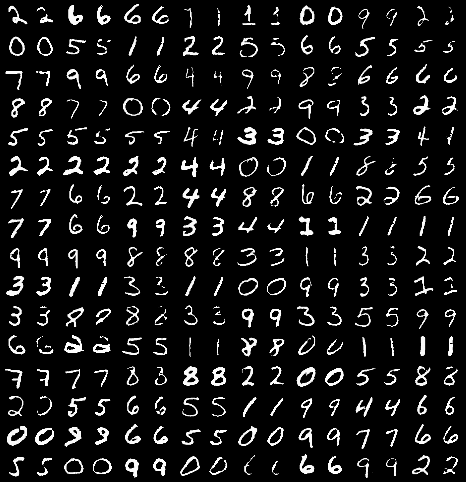 2 2 6 6 6 6 7 1 1 3 0 0 9 9 2 3
0 0 5 5 1 1 2 2 5 5 6 6 5 5 5 5
7 7 9 9 6 6 4 4 9 9 8 8 6 6 6 6
8 8 7 7 0 0 4 4 2 2 9 9 3 3 2 2
5 5 5 5 5 5 4 4 3 3 0 0 3 3 4 1
2 2 2 2 2 2 4 4 0 0 1 1 8 8 5 5
7 7 6 6 2 2 4 4 8 8 6 6 2 2 6 6
7 7 6 6 9 9 3 3 4 4 1 1 1 1 1 1
9 9 9 9 8 8 8 8 3 3 1 1 3 3 2 2
3 3 1 1 3 3 1 1 0 0 9 9 3 3 1 1
3 3 8 8 8 8 3 3 9 9 3 3 5 5 9 9
6 6 2 2 5 5 1 1 8 8 0 0 1 1 1 1
7 7 7 7 8 3 8 8 2 2 0 0 5 5 8 8
2 2 5 5 6 6 5 5 1 1 9 9 4 4 6 6
0 0 9 9 6 6 5 5 0 0 9 9 7 7 6 6
5 5 0 0 9 9 0 0 6 6 6 6 9 9 2 2